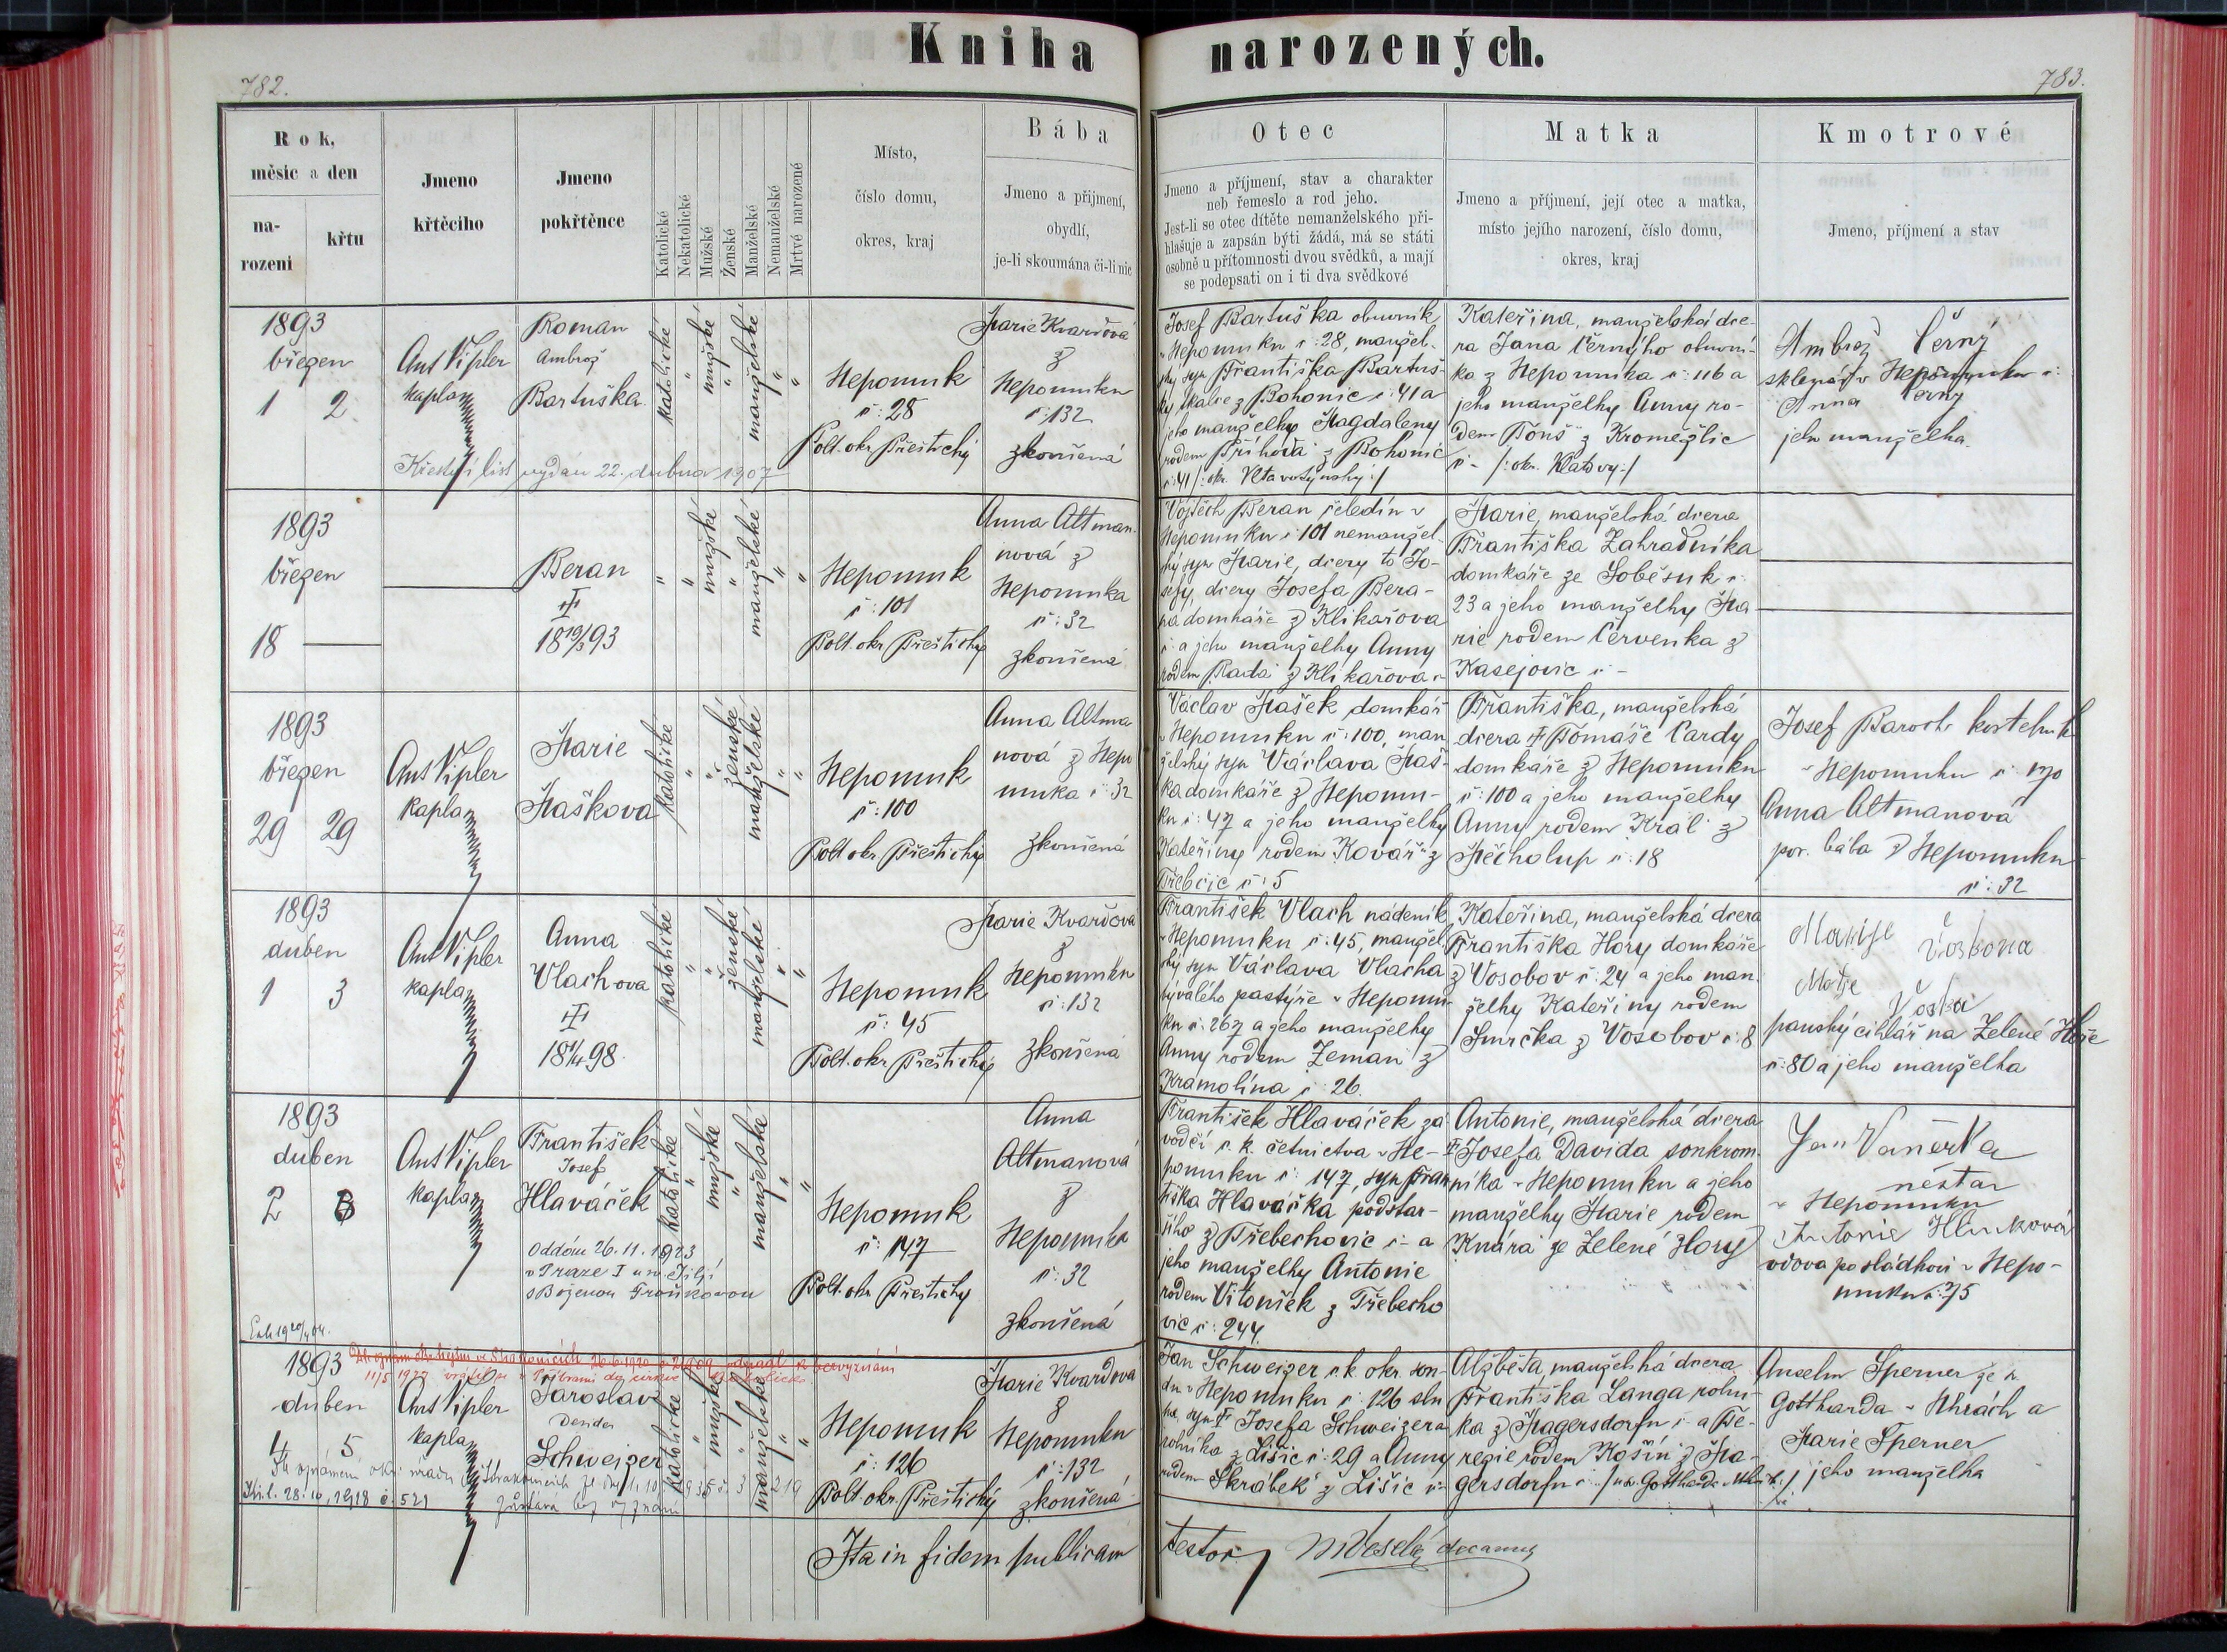 Kniha narozených.
782.
783.
Rok,
měsíc a den
na-
rozeni
křtu
Jmeno
křtěcího
Jmeno
pokřtěnce
Katolické
Nekatolické
Mužské
Ženské
Manželské
Nemanželské
Mrtvě narozené
Místo,
číslo domu,
okres, kraj
Bába
Jmeno a přijmení,
obydlí,
je-li zkoumána či-li nic
Otec
Jmeno a příjmení, stav a charakter
neb řemeslo a rod jeho.
Jest-li se otec dítěte nemanželského při-
hlašuje a zapsán býti žádá, má se státi
osobně u přítomnosti dvou svědků, a mají
se podepsati on i ti dva svědkové
Matka
Jmeno a příjmení, její otec a matka,
místo jejího narození, číslo domu,
okres, kraj
Kmotrové
Jmeno, příjmení a stav
1893
březen
1 2
Ant Vipler
kaplan
Roman
Ambrož
Bartuška
Křestní list vydán 22. dubna 1907
katolické
"
mužské
"
manželské
"
"
Nepomuk
č: 28
Polt. okr. Přeštický
Marie Kvardová
z
Nepomuku
č: 132
zkoušená
Josef Bartuška obuvník
v Nepomuku č: 28, manžel-
ský syn Františka Bartuš-
ky, tkalce z Bohonic č: 41 a
jeho manželky Magdaleny
rodem Příhoda z Bohonic
č: 41 /: okr. Vltavotýnský :/
Kateřina, manželská dce-
ra Jana Černýho obuvní-
ka z Nepomuka č: 116 a
jeho manželky Anny ro-
dem Tömš z Kroměždic
č - /: okr. Klatovy :/
Ambrož Černý
sklenář v Nepomuku č:
Anna Černý
jeho manželka.
1893
březen
18
Beran
18 19/3 93
"
"
mužské
"
manželské
"
"
Nepomuk
č: 101
Polt. okr. Přeštický
Anna Altman-
nová z
Nepomuka
č: 32
zkoušená
Vojtěch Beran čeledín v
Nepomuku č 101 nemanžel-
ský syn Marie, dcery to Jo-
sefy, dcery Josefa Bera-
na domkáře z Klikařova
č: a jeho manželky Anny
rodem Rada z Klikařova č
Marie, manželská dcera
Františka Zahradníka
domkáře ze Soběsuk č:
23 a jeho manželky Ma-
rie rodem Červenka z
Kasejovic č -
1893
březen
29 29
Ant Vipler
kaplan
Marie
Mašková
katolické
"
"
ženské
manželské
"
"
Nepomuk
č: 100
Polt. okr. Přeštický
Anna Altma
nová z Nepo
muka č: 32
zkoušená
Václav Mašek domkář
v Nepomuku č: 100, man
želský syn Václava Maš-
ka domkáře z Nepomu-
ku č: 47 a jeho manželky
Kateřiny rodem Kovář z
Třebčic č: 5
Františka, manželská
dcera Tomáše Cardy
domkáře z Nepomuku
č: 100 a jeho manželky
Anny rodem Král z
Měcholup č: 18
Josef Baroch kostelník
v Nepomuku č: 170
Anna Altmanová
por. bába z Nepomuku
č: 32
1893
duben
1 3
Ant Vipler
kaplan
Anna
Vlachova
18 1/4 98
katolické
"
"
ženské
manželské
"
"
Nepomuk
č: 45
Polt. okr. Přeštický
Marie Kvardova
z
Nepomuku
č: 132
zkoušená
František Vlach nádeník
v Nepomuku č: 45, manžel-
ský syn Václava Vlacha
bývalého pastýře v Nepomu-
ku č: 267 a jeho manželky
Anny rodem Zeman z
Kramolína č: 26.
Kateřina, manželská dcera
Františka Hory domkáře
z Vosobov č: 24 a jeho man-
želky Kateřiny rodem
Smrčka z Vosobov č: 8
Marije Voskova
Matje Voska
panský cihlář na Zelené Hoře
č: 80 a jeho manželka
1893
duben
2 3
Ant Vipler
kaplan
František
Josef
Hlaváček
Oddán 26. 11. 1923
v Praze I u sv. Jiljí
s Boženou Troníkovou
katolické
"
mužské
"
manželské
"
"
Nepomuk
č: 147
Polt. okr. Přeštický
Anna
Altmanová
z
Nepomuka
č: 32
zkoušená
František Hlaváček zá
vodčí c. k. četnictva v Ne-
pomuku č: 147, syn Fran
tiška Hlaváčka podstar-
šího z Třebechovic č - a
jeho manželky Antonie
rodem Vitoušek z Třebecho
vic č: 244.
Antonie, manželská dcera
Josefa Davida soukrom-
níka v Nepomuku a jeho
manželky Marie rodem
Knára ze Zelené Hory
Jan Vaněrka
v Nepomuku
Antonie
vdova po sládkovi v Nepo-
muku č: 75
1893
duben
4 5
Ant Vipler
kaplan
Jaroslav
Desider
Schweizer
katolické
"
mužské
"
manželské
"
"
Nepomuk
č: 126
Polt. okr. Přeštický
Marie Kvardova
z
Nepomuku
č: 132
zkoušená
Jan Schweizer c. k. okr. sou-
du v Nepomuku č: 126 slu
ha, syn Josefa Schweizera
rolníka z Lišic č: 29 a Anny
rodem Škrábek z Lišic č:-
Alžběta, manželská dcera
Františka Langa rolní-
ka z Magersdorfu č: - a Te-
regie rodem Košín z Ma-
gersdorfu č:
Anselm Sperner ze sv.
Gottharda v Uhrách a
Marie Sperner
jeho manželka
Ita in fidem publicam
testor Veselý decanus